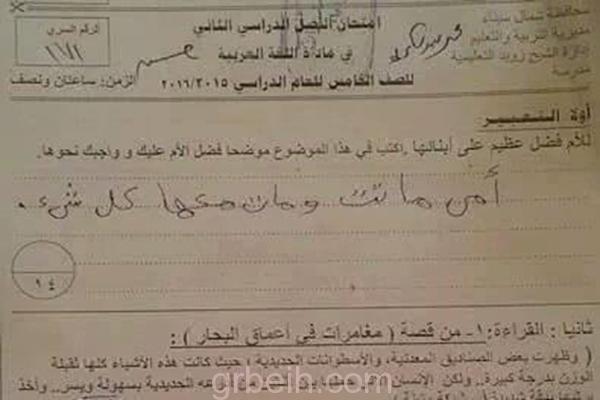 محافظة شمال سيناء
مديرية التربية والتعليم
إدارة الشيخ زويد التعليمية
مدرسة
امتحان الفصل الدراسي الثاني
في مادة اللغة العربية
للصف الخامس للعام الدراسي ٢٠١٦/٢٠١٥
الرقم السري
الزمن: ساعتان ونصف
أولا التعبير
للأم فضل عظيم على أبنائها .اكتب في هذا الموضوع موضحا فضل الأم عليك و واجبك نحوها.
أمي ماتت ومات معها كل شيء .
١٤
ثانيا : القراءة: ١- من قصة ( مغامرات في أعماق البحار ) :
( وظهرت بعض الصناديق المعدنية، والأسطوانات الحديدية ؛ حيث كانت هذه الأشياء كلها ثقيلة
الوزن بدرجة كبيرة.. ولكن الإنسان
الحديدية بسهولة ويسر.. وأخذ
grbeih.com